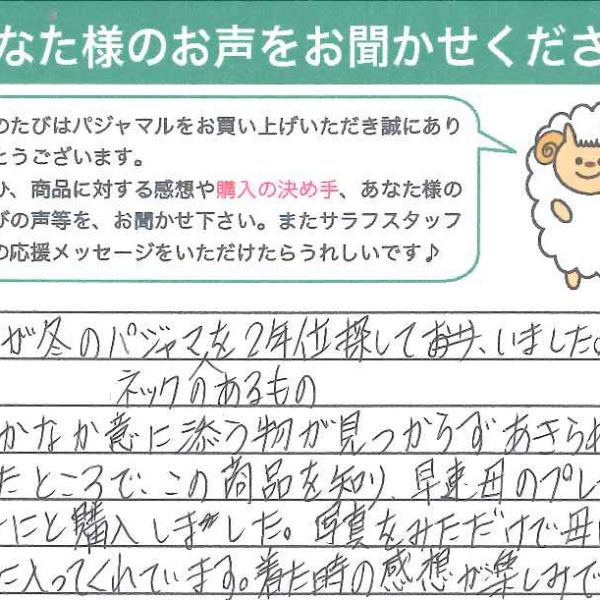 なた様のお声をお聞かせくださ
のたびはパジャマルをお買い上げいただき誠にあり
とうございます。
ひ、商品に対する感想や購入の決め手、あなた様の
びの声等を、お聞かせ下さい。またサラフスタッフ
の応援メッセージをいただけたらうれしいです♪
が冬のパジャマを2年位探しており、いました。
ネックのあるもの
かなか意に添う物が見つからずあきらめ
たところで、この商品を知り、早速母のプレ
にと購入しました。写真をみただけで母
に入ってくれています。着た時の感想が楽しみで